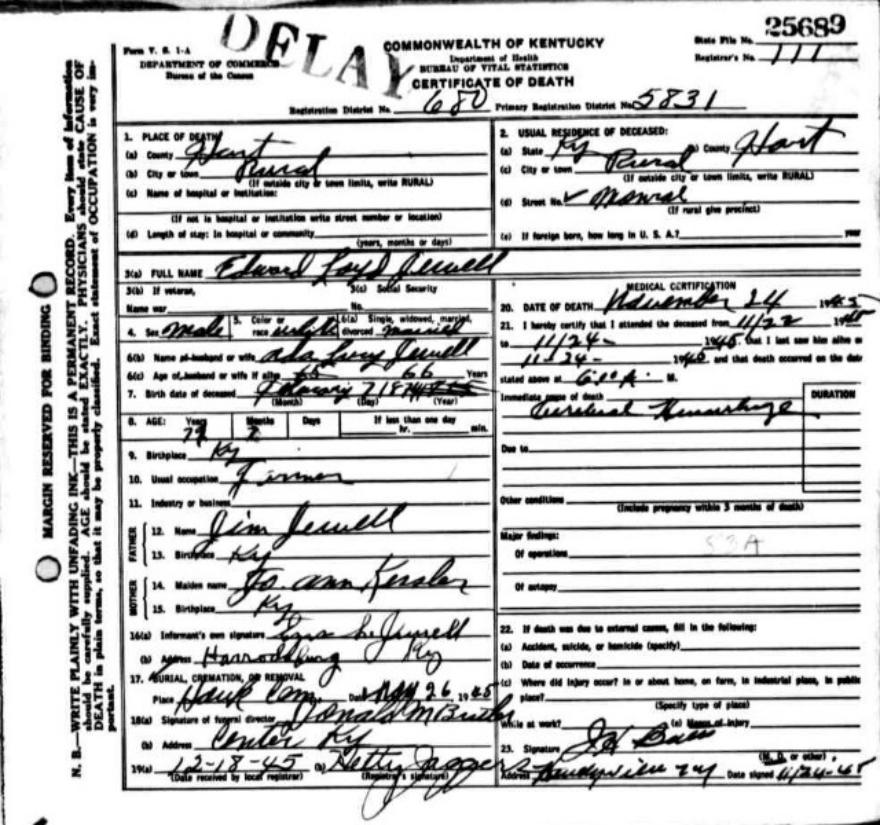 25689
DELAY
Form V. S. 1-A
DEPARTMENT OF COMMERCE
Bureau of the Census
COMMONWEALTH OF KENTUCKY
Department of Health
BUREAU OF VITAL STATISTICS
CERTIFICATE OF DEATH
State File No.
Registrar's No. 111
Registration District No. 680 Primary Registration District No. 5831
MARGIN RESERVED FOR BINDING
N. B.—WRITE PLAINLY WITH UNFADING INK—THIS IS A PERMANENT RECORD. Every item of information
should be carefully supplied. AGE should be stated EXACTLY. PHYSICIANS should state CAUSE OF
DEATH in plain terms, so that it may be properly classified. Exact statement of OCCUPATION is very im-
portant.
1. PLACE OF DEATH:
(a) County Hart
(b) City or town Rural
(If outside city or town limits, write RURAL)
(c) Name of hospital or institution:
(If not in hospital or institution write street number or location)
(d) Length of stay: In hospital or community
(years, months or days)
2. USUAL RESIDENCE OF DECEASED:
(a) State Ky (b) County Hart
(c) City or town Rural
(If outside city or town limits, write RURAL)
(d) Street No.
(If rural give precinct)
(e) If foreign born, how long in U. S. A.? year
3(a) FULL NAME Edward Loyd Jewell
3(b) If veteran,
Name war
3(c) Social Security
No.
4. Sex Male 5. Color or race white 6(a) Single, widowed, married, divorced married
6(b) Name of husband or wife Ada Jewell
6(c) Age of husband or wife if alive 66 Years
7. Birth date of deceased
(Month) (Day) (Year)
8. AGE: Years Months Days If less than one day
hr. min.
9. Birthplace Ky
10. Usual occupation Farmer
11. Industry or business
FATHER
12. Name Jim Jewell
13. Birthplace Ky
MOTHER
14. Maiden name Jo. ann Kessler
15. Birthplace Ky
16(a) Informant's own signature Jewell
(b) Address Harrodsburg Ky
17. BURIAL, CREMATION, OR REMOVAL
Place Cem. Date Nov 26 1945
18(a) Signature of funeral director Donald M Butler
(b) Address Center Ky
19(a) 12-18-45 (b) Hetty Jaggers
(Date received by local registrar) (Registrar's signature)
MEDICAL CERTIFICATION
20. DATE OF DEATH November 24 1945
21. I hereby certify that I attended the deceased from 11/22 1945
to 11/24- 1945 that I last saw him alive on
11-24- 1945 and that death occurred on the date
stated above at M.
Immediate cause of death
DURATION
Cerebral Hemorrhage
Due to
Other conditions
(Include pregnancy within 3 months of death)
Major findings:
Of operations
83A
Of autopsy
22. If death was due to external causes, fill in the following:
(a) Accident, suicide, or homicide (specify)
(b) Date of occurrence
(c) Where did injury occur? In or about home, on farm, in industrial place, in public
place?
(Specify type of place)
While at work? (e) Means of injury
23. Signature
(M. D. or other)
Address Date signed 11/24-45